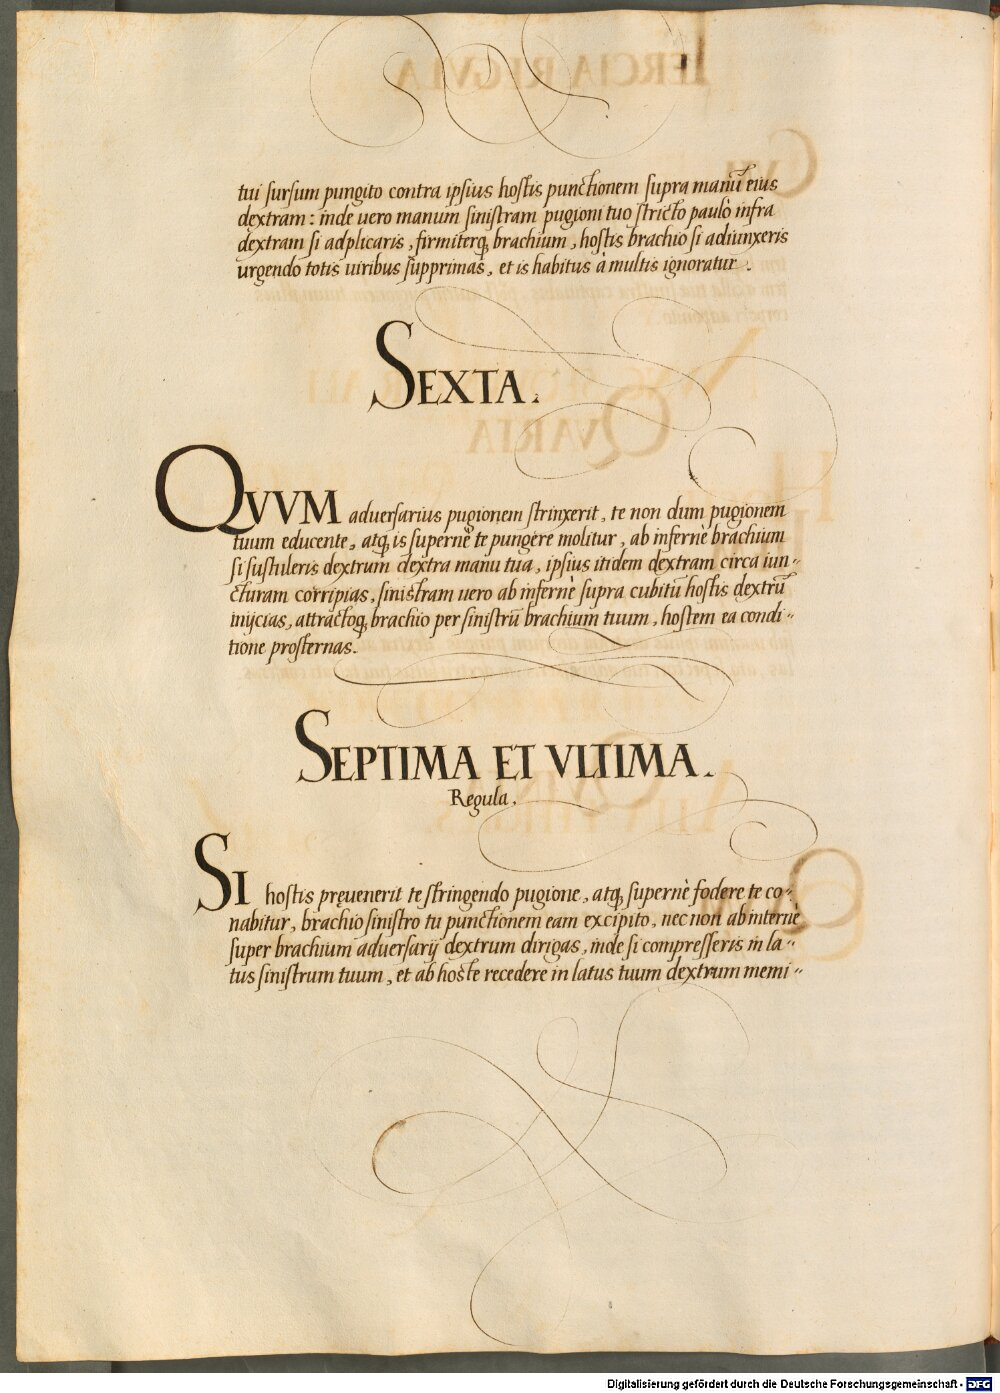 tui sursum pungito contra ipsius hostis punctionem supra manū eius
dextram : inde uero manum sinistram pugioni tuo stricto paulò infra
dextram si adplicaris , firmiterq; brachium , hostis brachio si adiunxeris
urgendo totis uiribus supprimas , et is habitus à multis ignoratur .
SEXTA .
QVVM aduersarius pugionem strinxerit , te non dum pugionem
tuum educente , atq; is supernè te pungere molitur , ab infernè brachium
si sustuleris dextrum dextra manu tua , ipsius itidem dextram circa iun-
cturam corripias , sinistram uero ab infernè supra cubitū hostis dextrū
inijcias , attractoq; brachio per sinistrū brachium tuum , hostem ea condi-
tione prosternas .
SEPTIMA ET VLTIMA .
Regula .
SI hostis preuenerit te stringendo pugione , atq; supernè fodere te co-
nabitur , brachio sinistro tu punctionem eam excipito , nec non ab internè
super brachium aduersarij dextrum dirigas , inde si compresseris in la-
tus sinistrum tuum , et ab hoste recedere in latus tuum dextrum memi-
Digitalisierung gefördert durch die Deutsche Forschungsgemeinschaft - DFG